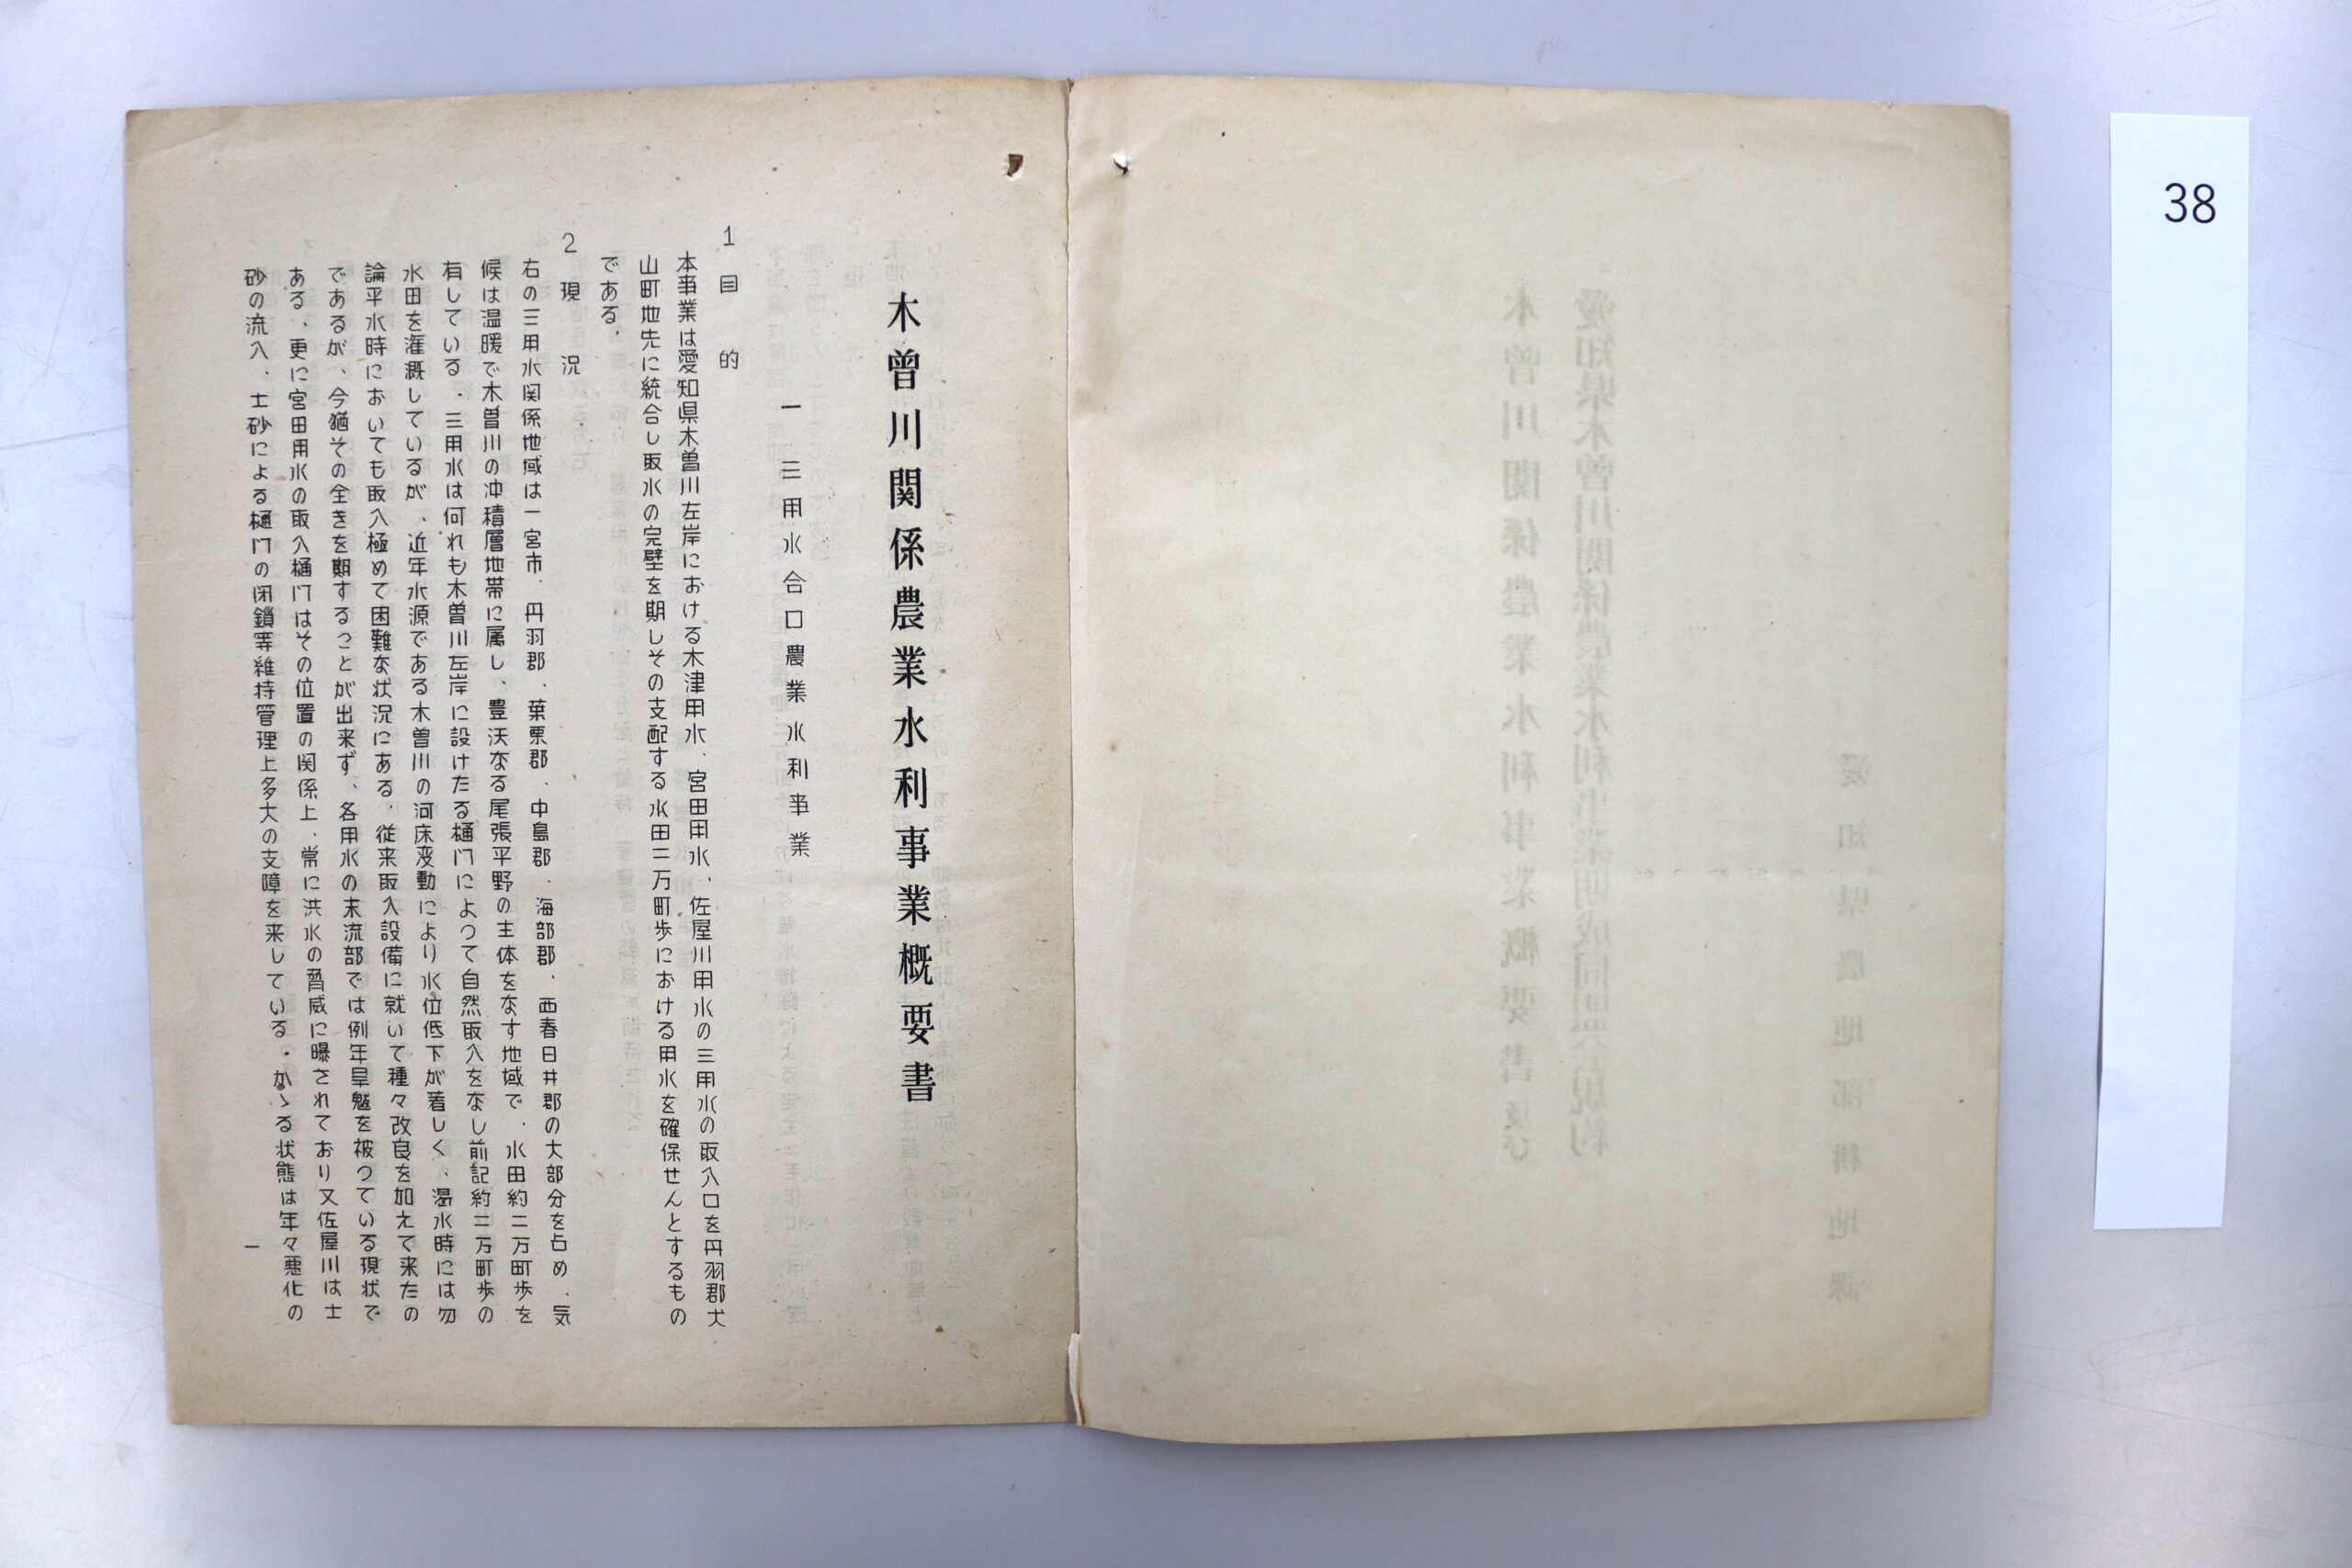 38
木曽川関係農業水利事業概要書
一 三用水合口農業水利事業
1 目的
本事業は愛知県木曽川左岸における木津用水、宮田用水、佐屋川用水の三用水の取入口を丹羽郡犬
山町地先に統合し取水の完壁を期しその支配する水田二万町歩における用水を確保せんとするもの
である。
2 現況
右の三用水関係地域は一宮市、丹羽郡、葉栗郡、中島郡、海部郡、西春日井郡の大部分を占め、気
候は温暖で木曽川の冲積層地帯に属し、豊沃なる尾張平野の主体をなす地域で、水田約二万町歩を
有している、三用水は何れも木曽川左岸に設けたる樋門によつて自然取入をなし前記約二万町歩の
水田を潅漑しているが、近年水源である木曽川の河床変動により水位低下が著しく、渇水時には勿
論平水時においても取入極めて困難な状況にある。従来取入設備に就いて種々改良を加えて来たの
であるが、今猶その全きを期することが出来ず、各用水の末流部では例年旱魃を被つている現状で
ある、更に宮田用水の取入樋門はその位置の関係上、常に洪水の脅威に曝されており又佐屋川は土
砂の流入、土砂による樋門の閉鎖等維持管理上多大の支障を来している。かゝる状態は年々悪化の
一
愛知県農地部耕地課
愛知県木曽川関係農業水利事業期成同盟会規約
木曽川関係農業水利事業概要書及び